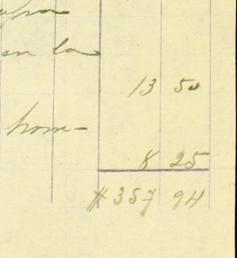 en la
13 50
hom-
8 25
$357 94